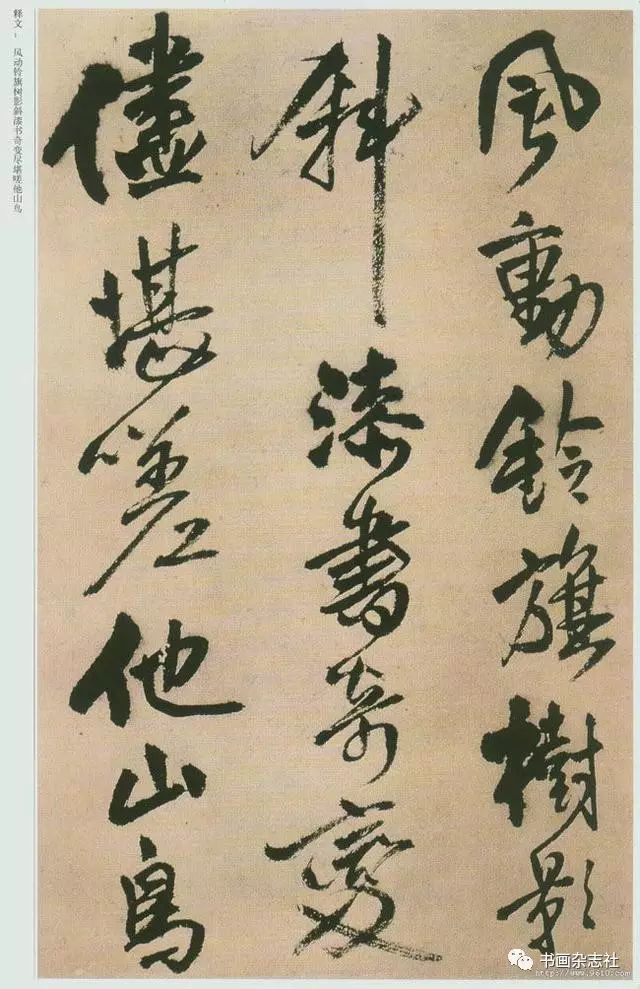 释文： 风动铃旗树影斜漆书奇变尽堪嗟他山鸟
風動鈴旗樹影
斜漆書奇變
儘堪嗟他山鳥
书画杂志社
http://www.9610.com